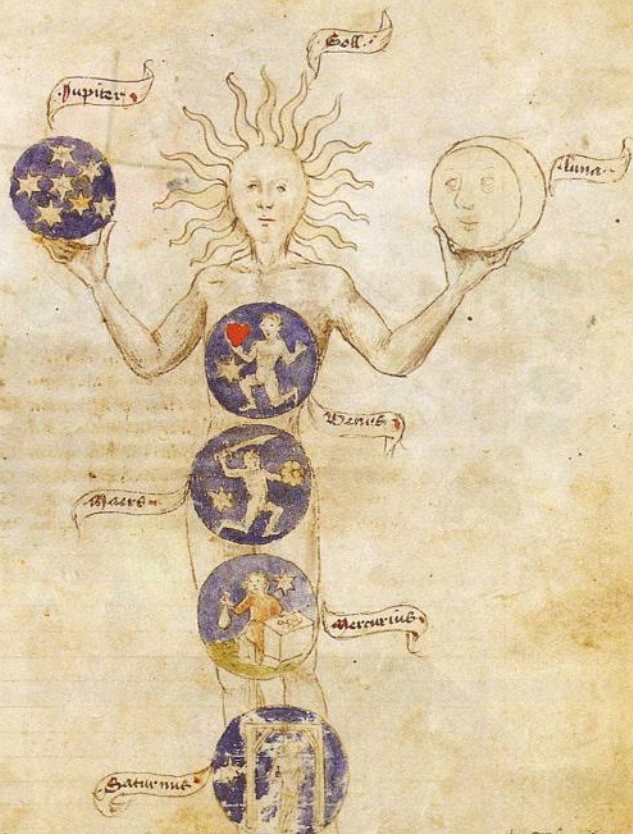 Soll
Jupiter
luna
Venus
Mars
Mercurius
Saturnus